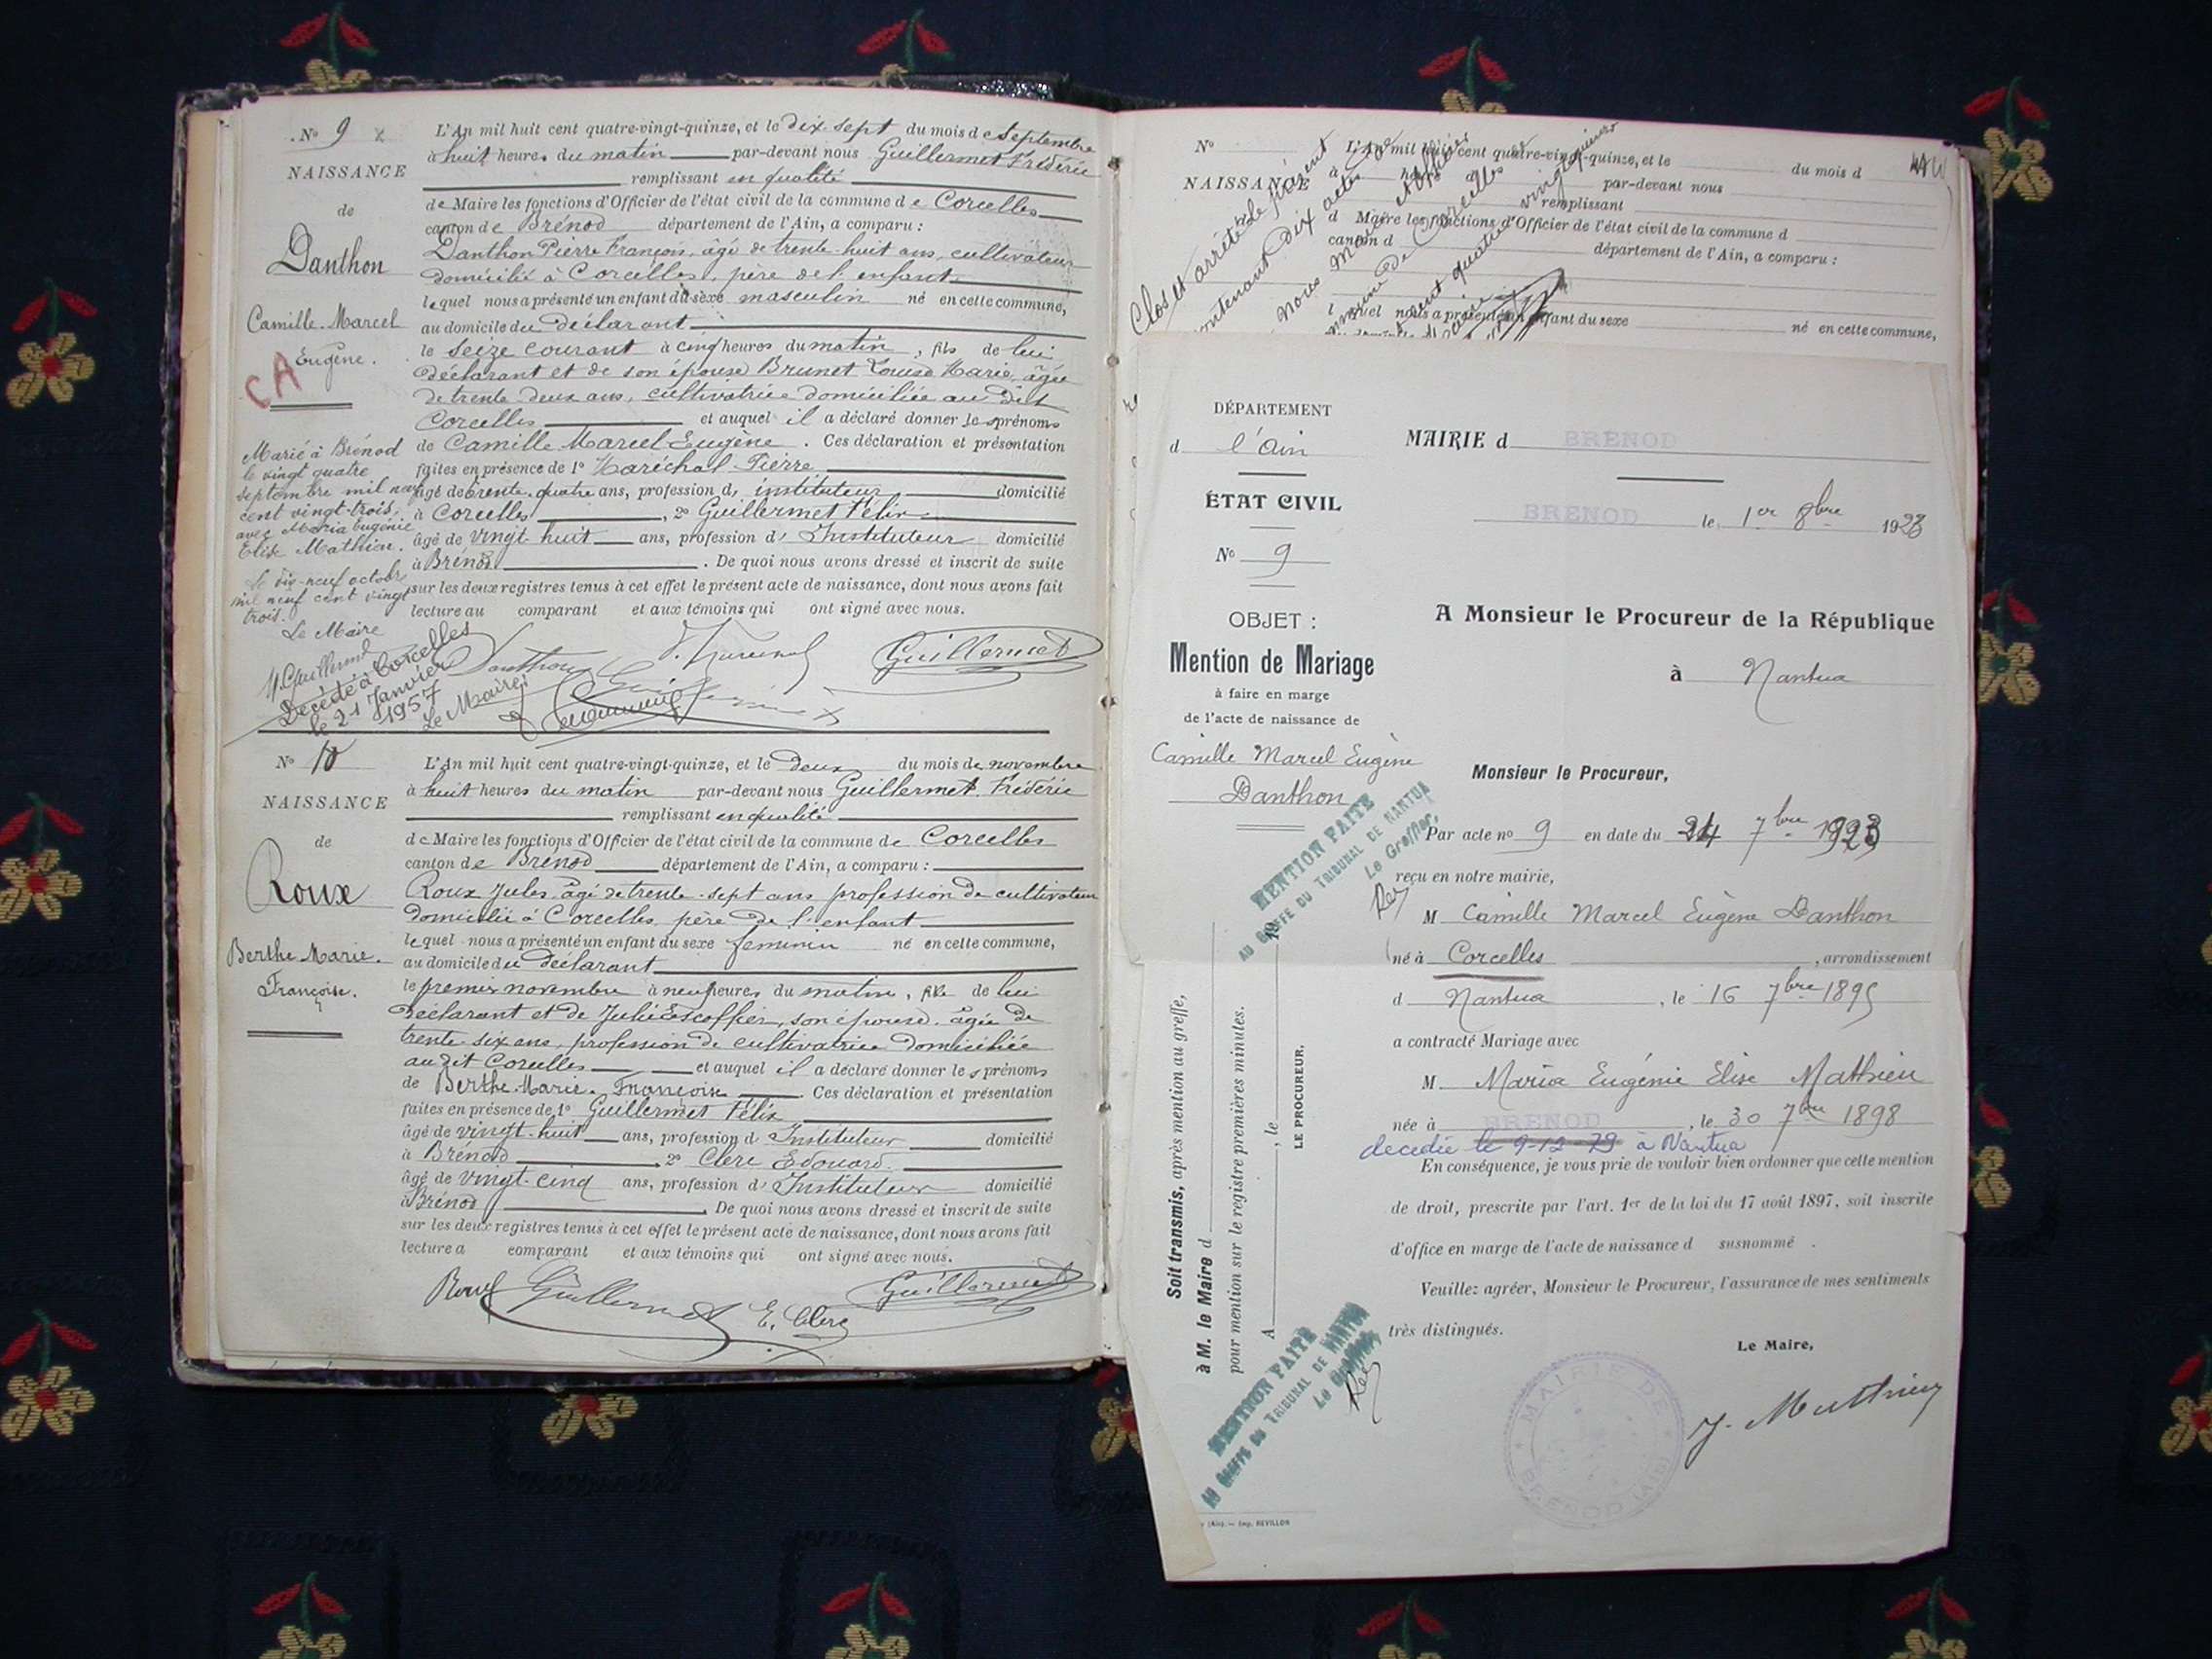 N° 9
NAISSANCE
de
Danthon
Camille Marcel
Eugène.
CA
Marié à Brénod
le vingt quatre
septembre mil neuf
cent vingt-trois,
avec Maria Eugénie
Elise Mathieu.
Le dix-neuf octobre
mil neuf cent vingt
trois.
Le Maire
Décédé à Corcelles
le 21 Janvier
1957
Le Maire,
L'An mil huit cent quatre-vingt-quinze, et le dix sept du mois de septembre
à huit heures du matin par-devant nous Guillermet Frédéric
remplissant en qualité
de Maire les fonctions d'Officier de l'état civil de la commune de Corcelles
canton de Brénod département de l'Ain, a comparu :
Danthon Pierre François, âgé de trente-huit ans, cultivateur
domicilié à Corcelles, père de l'enfant
lequel nous a présenté un enfant du sexe masculin né en cette commune,
au domicile du déclarant
le seize courant à cinq heures du matin, fils de lui
déclarant et de son épouse Brunet Louise Marie, âgée
de trente deux ans, cultivatrice domiciliée au dit
Corcelles et auquel il a déclaré donner les prénoms
de Camille Marcel Eugène. Ces déclaration et présentation
faites en présence de 1° Maréchal Pierre
âgé de trente-quatre ans, profession d' instituteur domicilié
à Corcelles, 2° Guillermet Félix
âgé de vingt-huit ans, profession d' Instituteur domicilié
à Brénod. De quoi nous avons dressé et inscrit de suite
sur les deux registres tenus à cet effet le présent acte de naissance, dont nous avons fait
lecture au comparant et aux témoins qui ont signé avec nous.
Danthon Guillermet
N° 10
NAISSANCE
de
Roux
Berthe Marie.
Françoise.
L'An mil huit cent quatre-vingt-quinze, et le deux du mois de novembre
à huit heures du matin par-devant nous Guillermet Frédéric
remplissant en qualité
de Maire les fonctions d'Officier de l'état civil de la commune de Corcelles
canton de Brénod département de l'Ain, a comparu :
Roux Jules, âgé de trente-sept ans profession de cultivateur
domicilié à Corcelles, père de l'enfant
lequel nous a présenté un enfant du sexe feminin né en cette commune,
au domicile du déclarant
le premier novembre à neuf heures du matin, fille de lui
déclarant et de Julie Escoffier, son épouse, âgée de
trente-six ans, profession de cultivatrice domiciliée
au dit Corcelles et auquel il a déclaré donner les prénoms
de Berthe Marie. Françoise. Ces déclaration et présentation
faites en présence de 1° Guillermet Félix
âgé de vingt-huit ans, profession d' Instituteur domicilié
à Brénod 2° Clerc Edouard.
âgé de vingt-cinq ans, profession d' Instituteur domicilié
à Brénod. De quoi nous avons dressé et inscrit de suite
sur les deux registres tenus à cet effet le présent acte de naissance, dont nous avons fait
lecture a comparant et aux témoins qui ont signé avec nous.
Roux Guillermet E. Clerc Guillermet
N°
NAISSANCE
L'An mil huit cent quatre-vingt-quinze, et le du mois d
par-devant nous
remplissant
d Maire les fonctions d'Officier de l'état civil de la commune d
canton d département de l'Ain, a comparu :
l quel nous a présenté un enfant du sexe né en cette commune,
Clos et arrêté le présent
contenant dix actes
nous Maire
Corcelles
DÉPARTEMENT
d l'Ain
ÉTAT CIVIL
N° 9
OBJET :
Mention de Mariage
à faire en marge
de l'acte de naissance de
Camille Marcel Eugène
Danthon
MAIRIE d BRENOD
BRENOD le 1er 8bre 1923
A Monsieur le Procureur de la République
à Nantua
Monsieur le Procureur,
Par acte n° 9 en date du 24 7bre 1923
reçu en notre mairie,
M Camille Marcel Eugène Danthon
né à Corcelles, arrondissement
d Nantua, le 16 7bre 1895
a contracté Mariage avec
M Maria Eugénie Elise Mathieu
née à BRENOD, le 30 7bre 1898
decedée le 9-12-79 à Nantua
En conséquence, je vous prie de vouloir bien ordonner que cette mention
de droit, prescrite par l'art. 1er de la loi du 17 août 1897, soit inscrite
d'office en marge de l'acte de naissance d susnommé .
Veuillez agréer, Monsieur le Procureur, l'assurance de mes sentiments
très distingués.
Le Maire,
J. Mathieu
MAIRIE DE BRENOD (AIN)
MENTION FAITE
AU GREFFE DU TRIBUNAL DE NANTUA
Le Greffier,
Soit transmis, après mention au greffe,
à M. le Maire d
pour mention sur le registre premières minutes.
A , le 19
LE PROCUREUR,
MENTION FAITE
AU GREFFE DU TRIBUNAL DE NANTUA
Le Greffier,
(Ain). — Imp. REVILLON